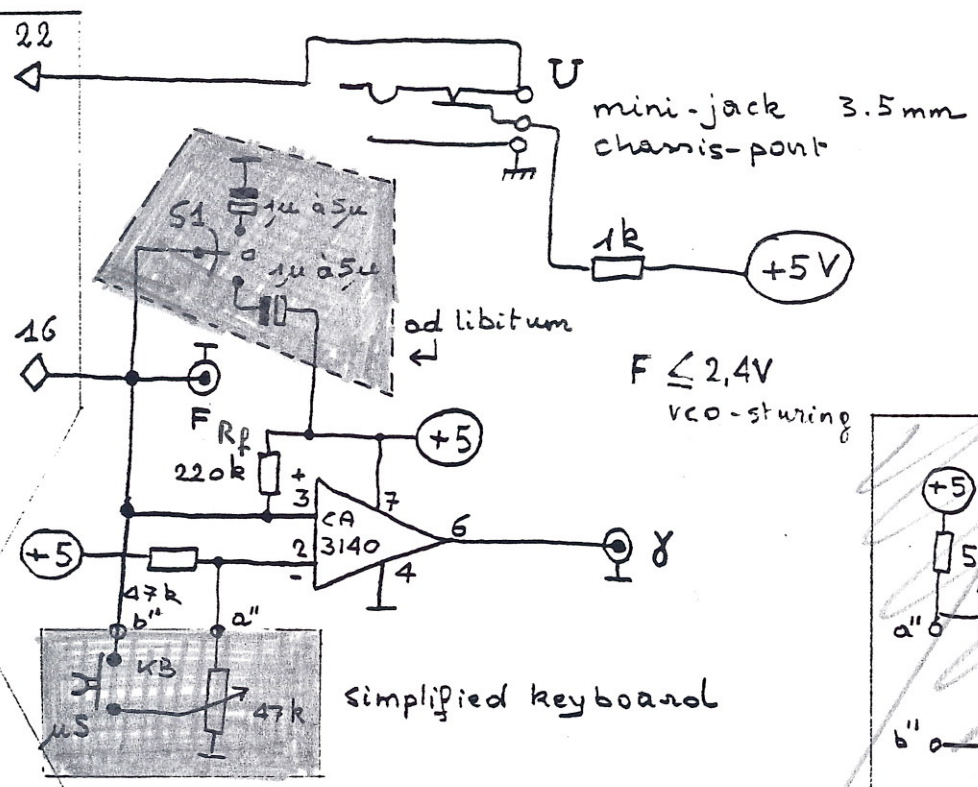 22
U
mini-jack 3.5mm
chassis-pont
1k
+5V
1µ à 5µ
S1
1µ à 5µ
ad libitum
16
F
F ≤ 2,4V
vco-sturing
Rf
220k
+5
+
3
7
CA
3140
6
γ
+5
2
-
4
47k
b"
a"
KB
47k
µS
simplified keyboard
+5
5
a"
b"